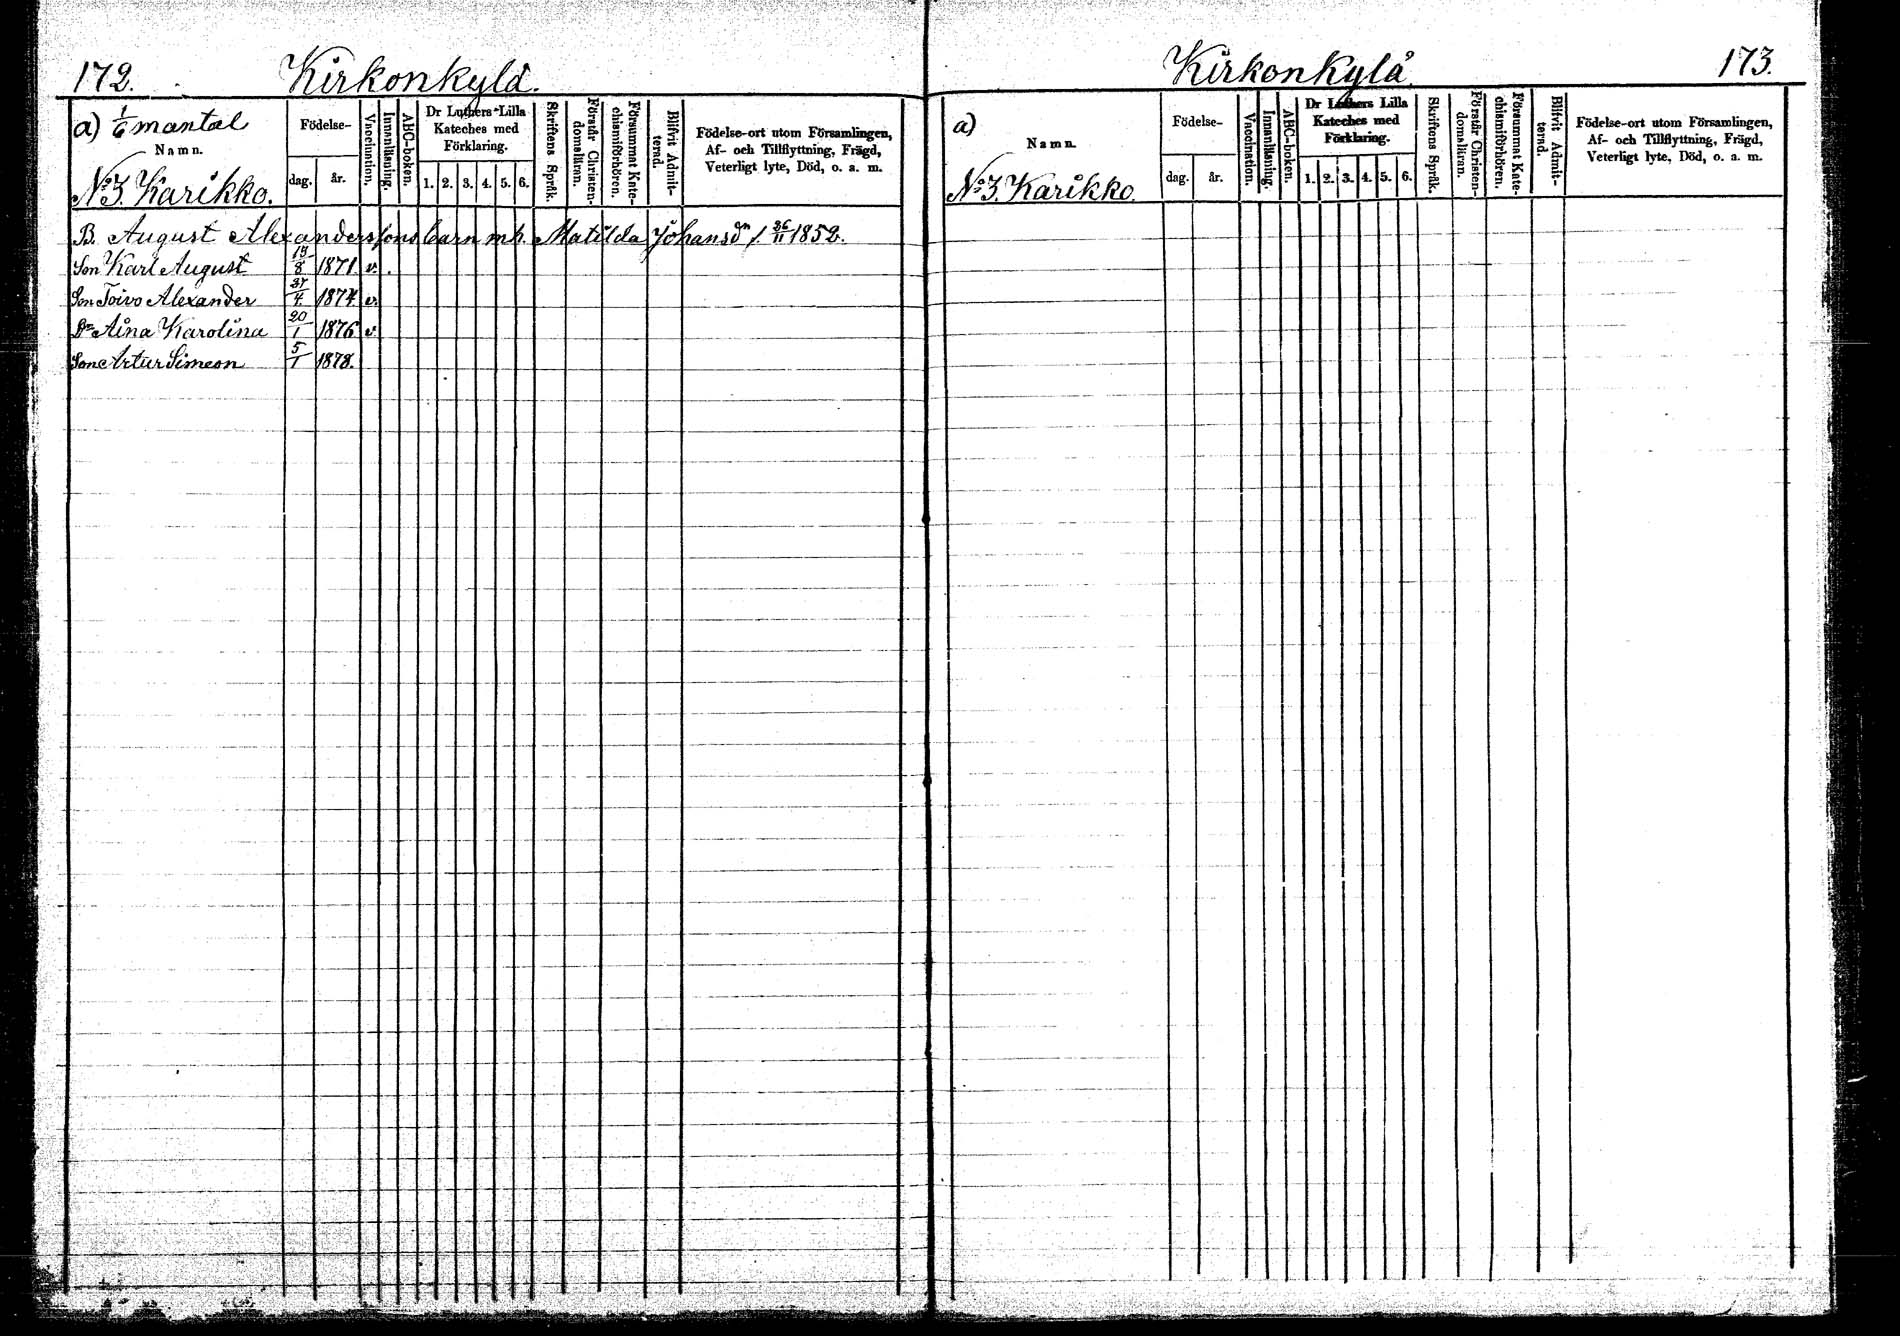 172.
Kirkonkylä.
a) 1/6 mantal
Namn.
No 3. Karikko.
Födelse-
dag.
år.
Vaccination.
Innanläsning.
ABC-boken.
Dr Luthers Lilla
Kateches med
Förklaring.
1. 2. 3. 4. 5. 6.
Skriftens Språk.
Förstår Christen-
domsläran.
Försummat Kate-
chismiförhören.
Blifvit Admit-
terad.
Födelse-ort utom Församlingen,
Af- och Tillflyttning, Frägd,
Veterligt lyte, Död, o. a. m.
B. August Alexanderssons barn m. h. Matilda Johansdn f. 26/11 1852.
Son Karl August 8 1871 v.
Son Toivo Alexander 27/4 1874 v.
Dr Aina Karolina 20/1 1876 v.
Son Artur Simeon 5/1 1878.
Kirkonkylä
173.
a)
Namn.
No 3. Karikko.
Födelse-
dag.
år.
Vaccination.
Innanläsning.
ABC-boken.
Dr Luthers Lilla
Kateches med
Förklaring.
1. 2. 3. 4. 5. 6.
Skriftens Språk.
Förstår Christen-
domsläran.
Försummat Kate-
chismiförhören.
Blifvit Admit-
terad.
Födelse-ort utom Församlingen,
Af- och Tillflyttning, Frägd,
Veterligt lyte, Död, o. a. m.